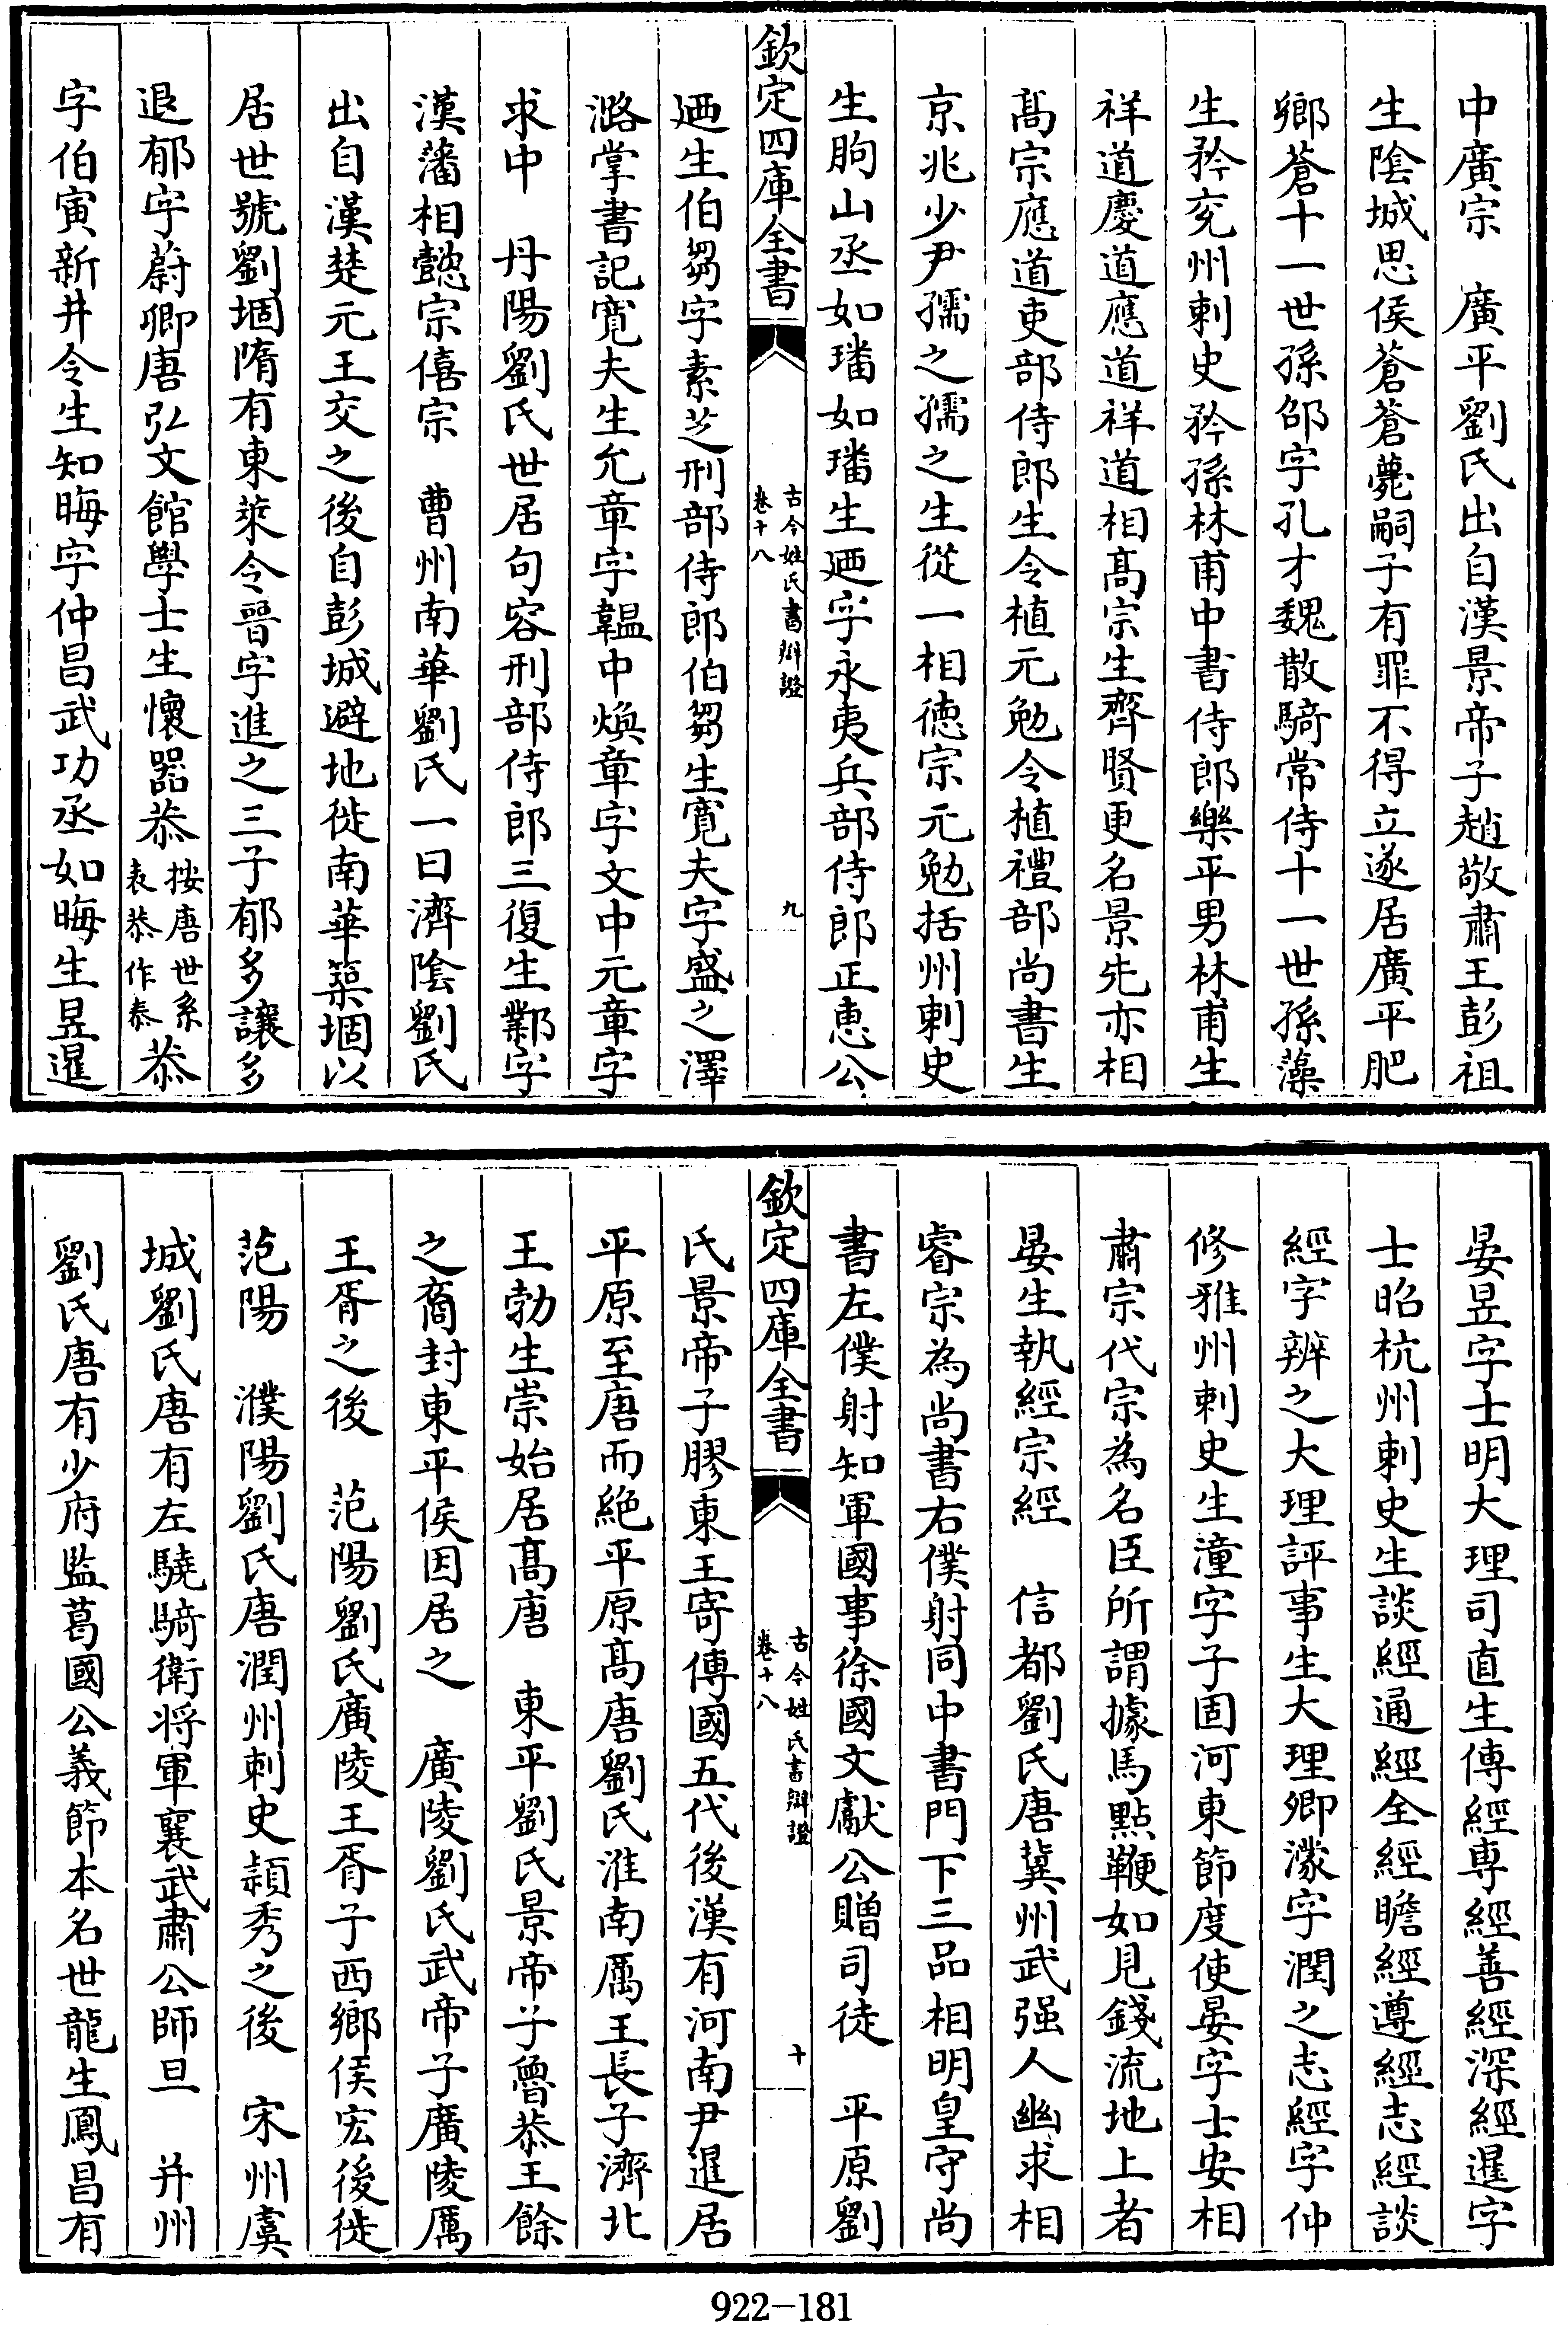 中廣宗　廣平劉氏出自漢景帝子趙敬肅王彭祖
生陰城思侯蒼蒼薨嗣子有罪不得立遂居廣平肥
鄉蒼十一世孫邵字孔才魏散騎常侍十一世孫藻
生矜兖州刺史矜孫林甫中書侍郎樂平男林甫生
祥道慶道應道祥道相髙宗生齊賢更名景先亦相
髙宗應道吏部侍郎生令植元勉令植禮部尚書生
京兆少尹孺之孺之生從一相徳宗元勉括州刺史
生朐山丞如璠如璠生廼字永夷兵部侍郎正惠公
欽定四庫全書
古今姓氏書辯證
卷十八
九
廼生伯芻字素芝刑部侍郎伯芻生寛夫字盛之澤
潞掌書記寛夫生允章字韞中煥章字文中元章字
求中　丹陽劉氏世居句容刑部侍郎三復生鄴字
漢藩相懿宗僖宗　曹州南華劉氏一曰濟陰劉氏
出自漢楚元王交之後自彭城避地徙南華築堌以
居世號劉堌隋有東萊令晉字進之三子郁多讓多
退郁字蔚卿唐弘文館學士生懷器恭按唐世系表恭作泰恭
字伯寅新井令生知晦字仲昌武功丞如晦生昱暹
晏昱字士明大理司直生傳經專經善經深經暹字
士昭杭州刺史生談經通經全經瞻經遵經志經談
經字辨之大理評事生大理卿濛字潤之志經字仲
修雅州刺史生潼字子固河東節度使晏字士安相
肅宗代宗為名臣所謂據馬㸃鞭如見錢流地上者
晏生執經宗經　信都劉氏唐冀州武强人幽求相
睿宗為尚書右僕射同中書門下三品相明皇守尚
書左僕射知軍國事徐國文獻公贈司徒　平原劉
欽定四庫全書
古今姓氏書辯證
卷十八
十
氏景帝子膠東王寄傳國五代後漢有河南尹暹居
平原至唐而絶平原髙唐劉氏淮南厲王長子濟北
王勃生崇始居髙唐　東平劉氏景帝子魯恭王餘
之裔封東平侯因居之　廣陵劉氏武帝子廣陵厲
王胥之後　范陽劉氏廣陵王胥子西鄉侯宏後徙
范陽　濮陽劉氏唐潤州刺史頴秀之後　宋州虞
城劉氏唐有左驍騎衛将軍襄武肅公師旦　并州
劉氏唐有少府監葛國公義節本名世龍生鳳昌有
922-181